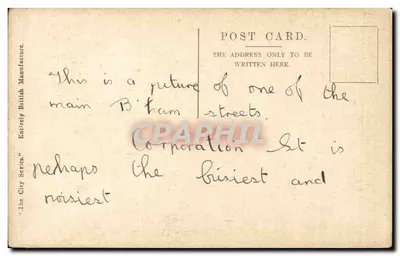 POST CARD.
THE ADDRESS ONLY TO BE
WRITTEN HERE.
"The City Series." Entirely British Manufacture.
This is a picture of one of the
main B'ham streets.
CPARPHIL
Corporation St is
perhaps the busiest and
noisiest